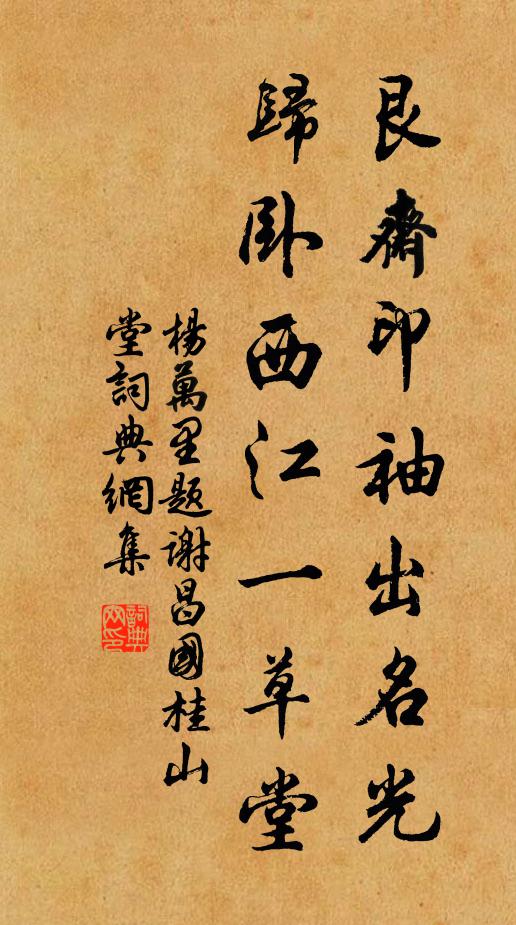 艮齋印袖出名光
歸卧西江一草堂
楊萬里题謝昌國桂山
堂詞典網集
詞典
网印